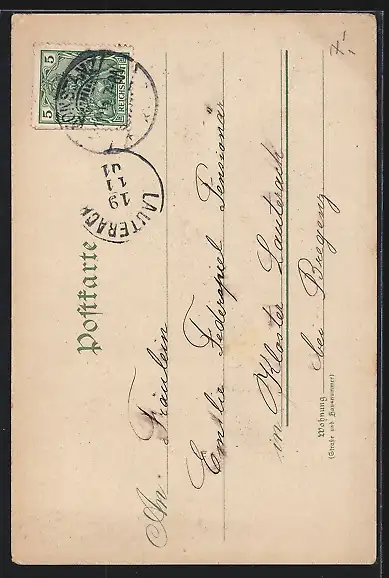 7,-
5 REICHSPOST 5
KONSTANZ
LAUTERACH
19
11
01
Postkarte
An Fräulein
Emilie Federspiel Pensionär
im Kloster Lauterach
bei Bregenz
Wohnung
(Straße und Hausnummer)